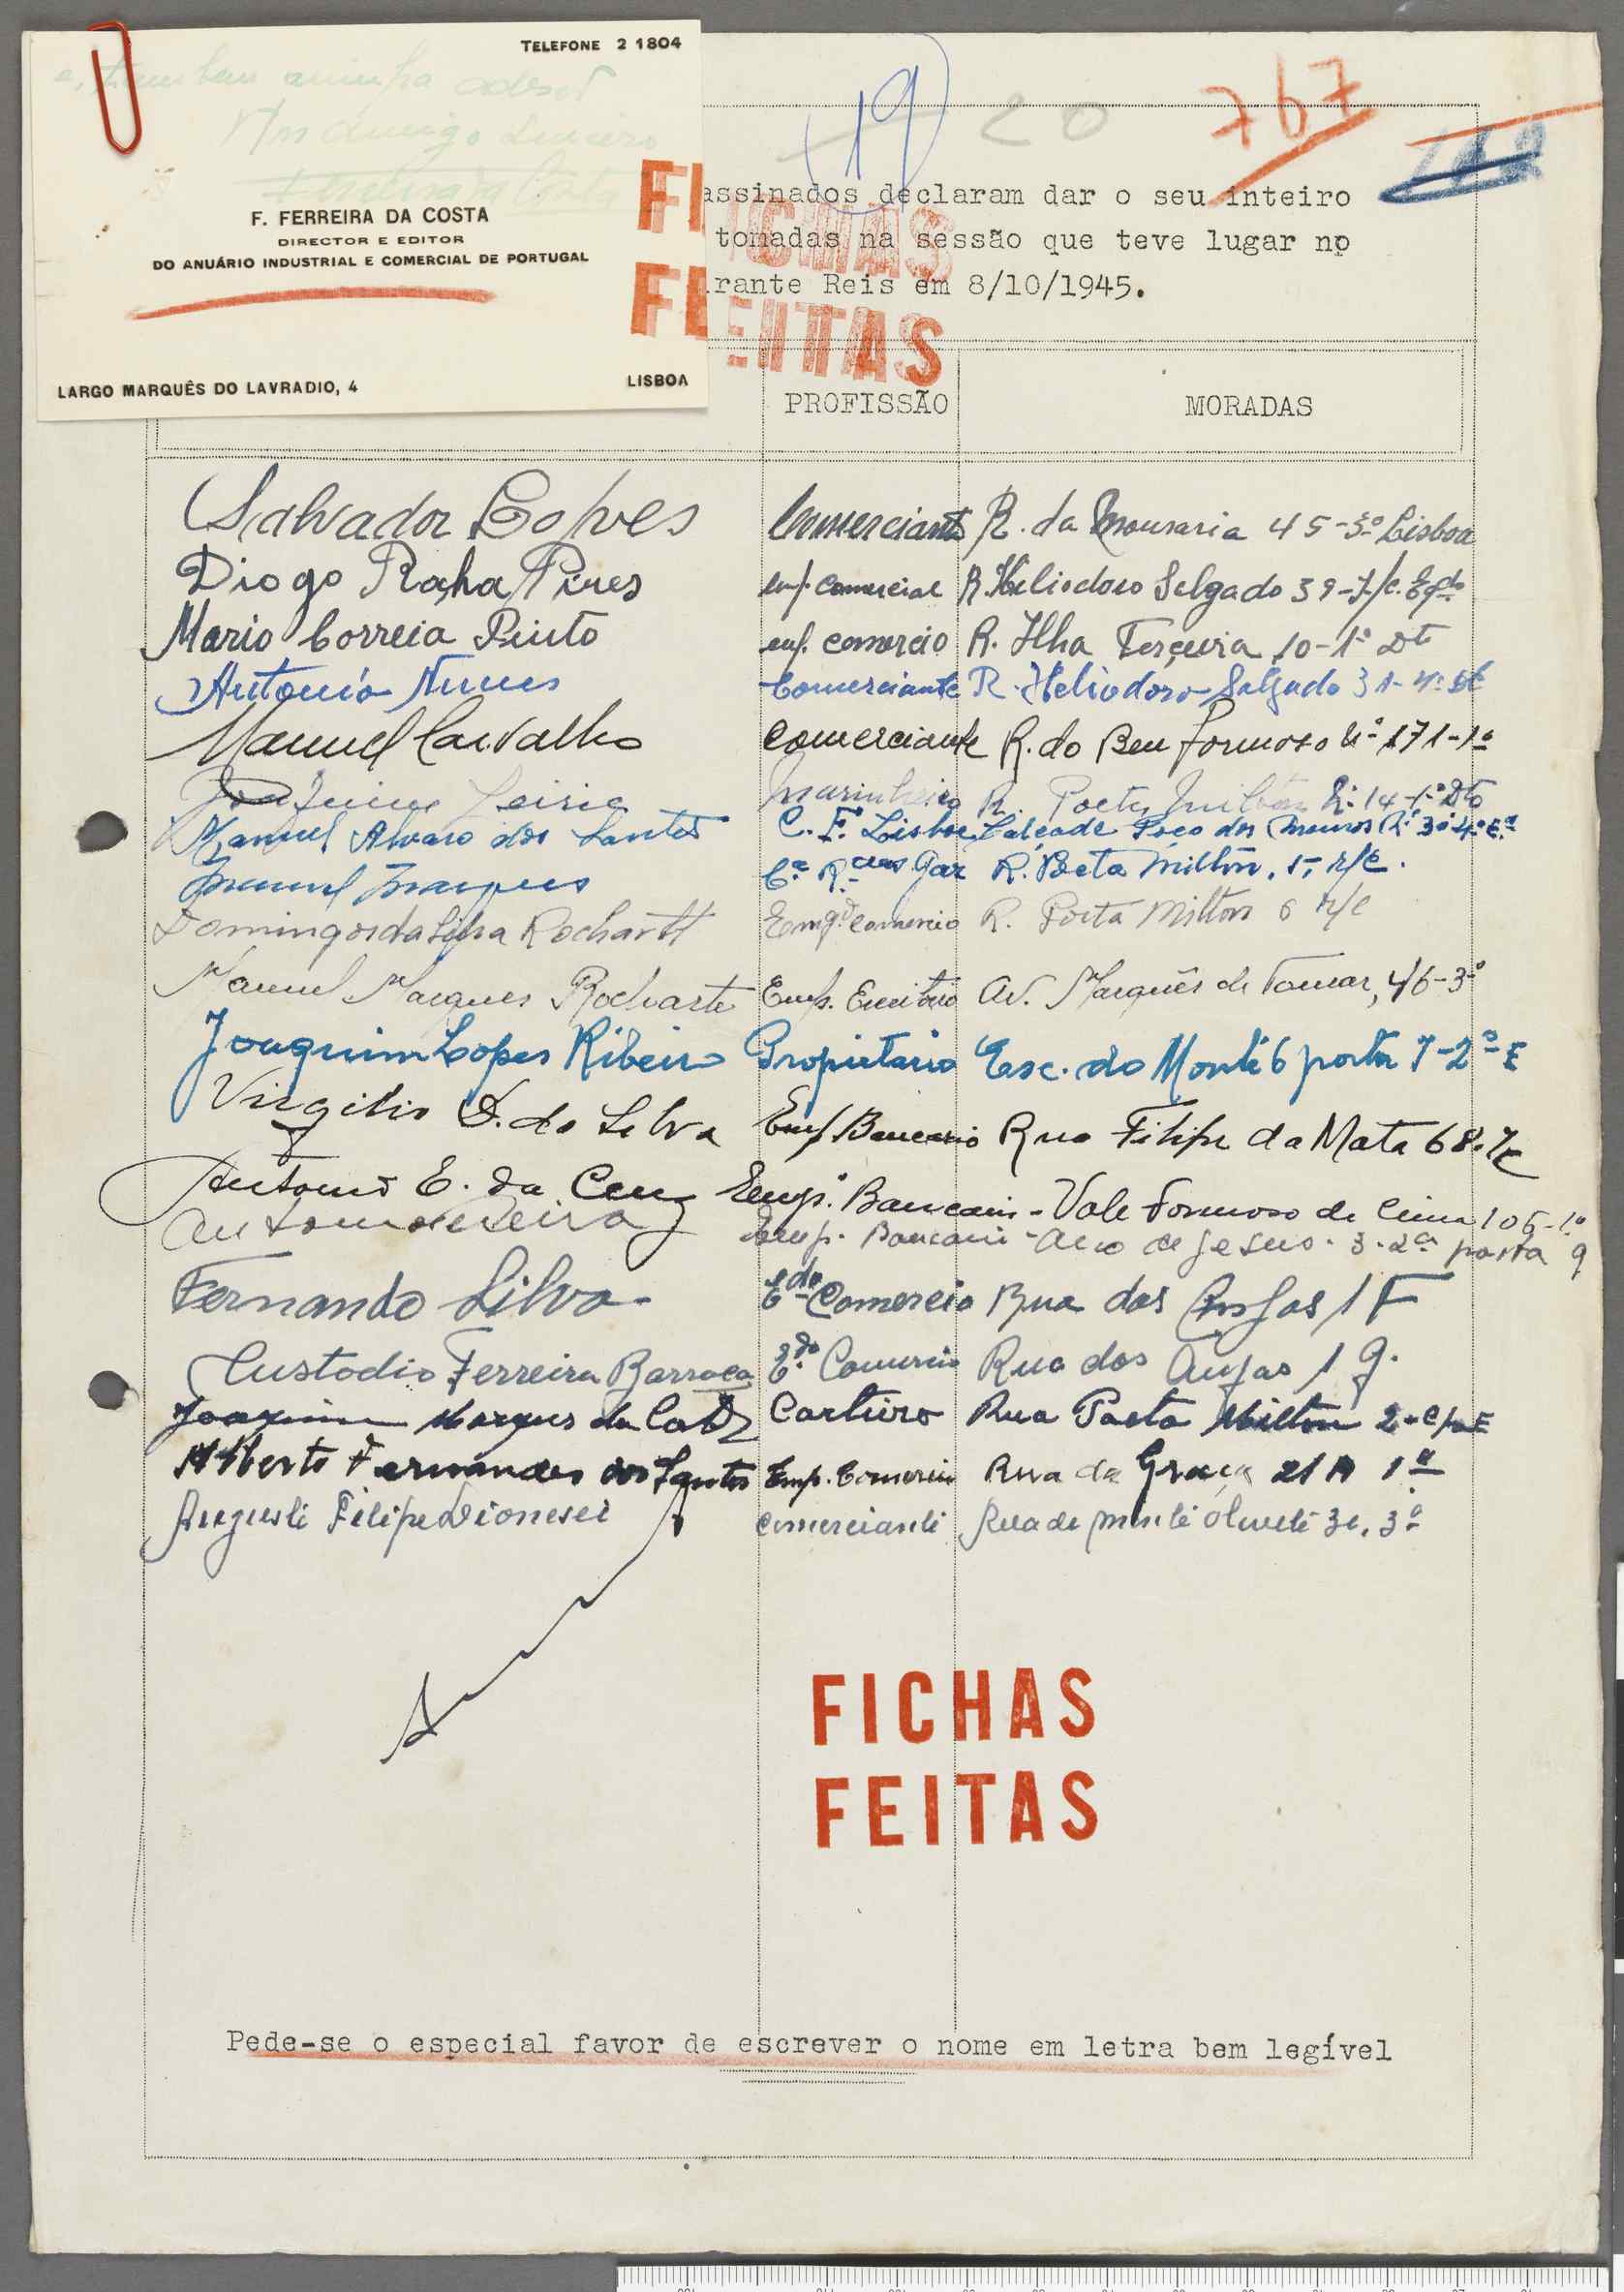 TELEFONE 2 1804
F. FERREIRA DA COSTA
DIRECTOR E EDITOR
DO ANUÁRIO INDUSTRIAL E COMERCIAL DE PORTUGAL
LARGO MARQUÊS DO LAVRADIO, 4 LISBOA
(19) 20 767
assinados declaram dar o seu inteiro
tomadas na sessão que teve lugar no
rante Reis em 8/10/1945.
FICHAS
FEITAS
PROFISSÃO MORADAS
Salvador Lopes Comerciante R. da Mouraria 45-3º Lisboa
Diogo Pires emp. Comercial R. Heliodoro Salgado 39-r/c. Eqdo
Mario Correia Pinto emp. comercio R. Ilha Terceira 10-1º Dto
Antonio Nunes Comerciante R. Heliodoro Salgado 31-4º Dto
Manuel Carvalho Comerciante R. do Bemformoso Nº 171-1º
Joaquim Leiria Marinheiro R. Poeta Milton Nº 14-1º Dto
Manuel Alvaro dos Santos C. F. Lisboa Calçada Poço dos Mouros Nº 3
Manuel Marques Gaz R. Poeta Milton, 5, r/c.
Domingos da Silva Rochartt Empº comercio R. Poeta Milton 6 r/c
Manuel Marques Rochartt Emp. Escritorio Av. Marquês de Tomar, 46-3º
Joaquim Lopes Ribeiro Propietario Esc. do Monte 6 porta 7-2º E
Virgilio D. da Silva Emp Bancario Rua Filipe da Mata 68. r/c
Antonio E. da Cruz Empº. Bancario - Vale Formoso de Cima 106-1º
Antonio Pereira Emp. Bancario - Arco de Jesus - 3-2º porta 9
Fernando Silva Edo Comercio Rua dos Anjos 1 F
Custodio Ferreira Barroca Edo. Comercio Rua dos Anjos 1 G.
Joaquim Marques da Carteiro Rua Poeta Milton 2
Alberto Fernandes dos Santos Emp. Comercio Rua da Graça 21 A 1º
Augusto Filipe Dionesei comerciante Rua de monte olivete 3º
FICHAS
FEITAS
Pede-se o especial favor de escrever o nome em letra bem legível